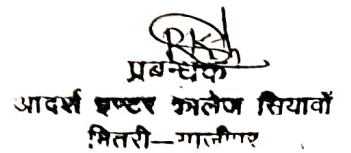 प्रबन्धक
आदर्श इण्टर कालेज सियावाँ
भितरी—गाजीपुर